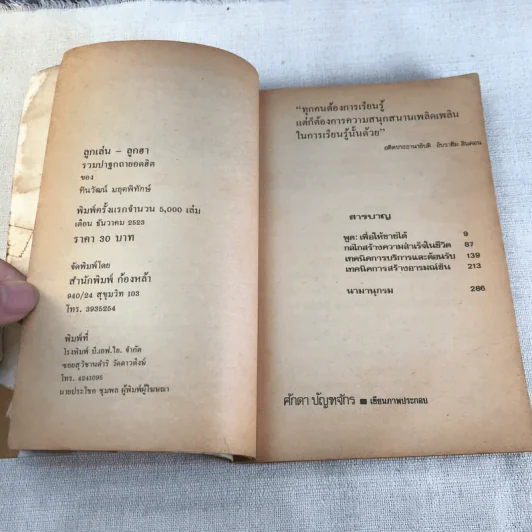 ลูกเล่น – ลูกฮา
รวมปาฐกถายอดฮิต
ของ
ทินวัฒน์ มฤคพิทักษ์
พิมพ์ครั้งแรกจำนวน 5,000 เล่ม
เดือน ธันวาคม 2523
ราคา 30 บาท
จัดพิมพ์โดย
สำนักพิมพ์ ก้องหล้า
940/24 สุขุมวิท 103
โทร. 3935254
พิมพ์ที่
โรงพิมพ์ ป.เอฟ.ไอ. จำกัด
ซอยสุวิชานดำริ วัดดาวดึงษ์
โทร. 4241095
นายประโชค ชุมพล ผู้พิมพ์ผู้โฆษณา
“ทุกคนต้องการเรียนรู้
แต่ก็ต้องการความสนุกสนานเพลิดเพลิน
ในการเรียนรู้นั้นด้วย”
อดีตประธานาธิบดี อับราฮัม ลินคอน
สารบาญ
พูด: เพื่อให้ขายได้ 9
กลไกสร้างความสำเร็จในชีวิต 87
เทคนิคการบริการและต้อนรับ 139
เทคนิคการสร้างอารมณ์ขัน 213
นามานุกรม 286
ศักดา บัญฑจักร เขียนภาพประกอบ